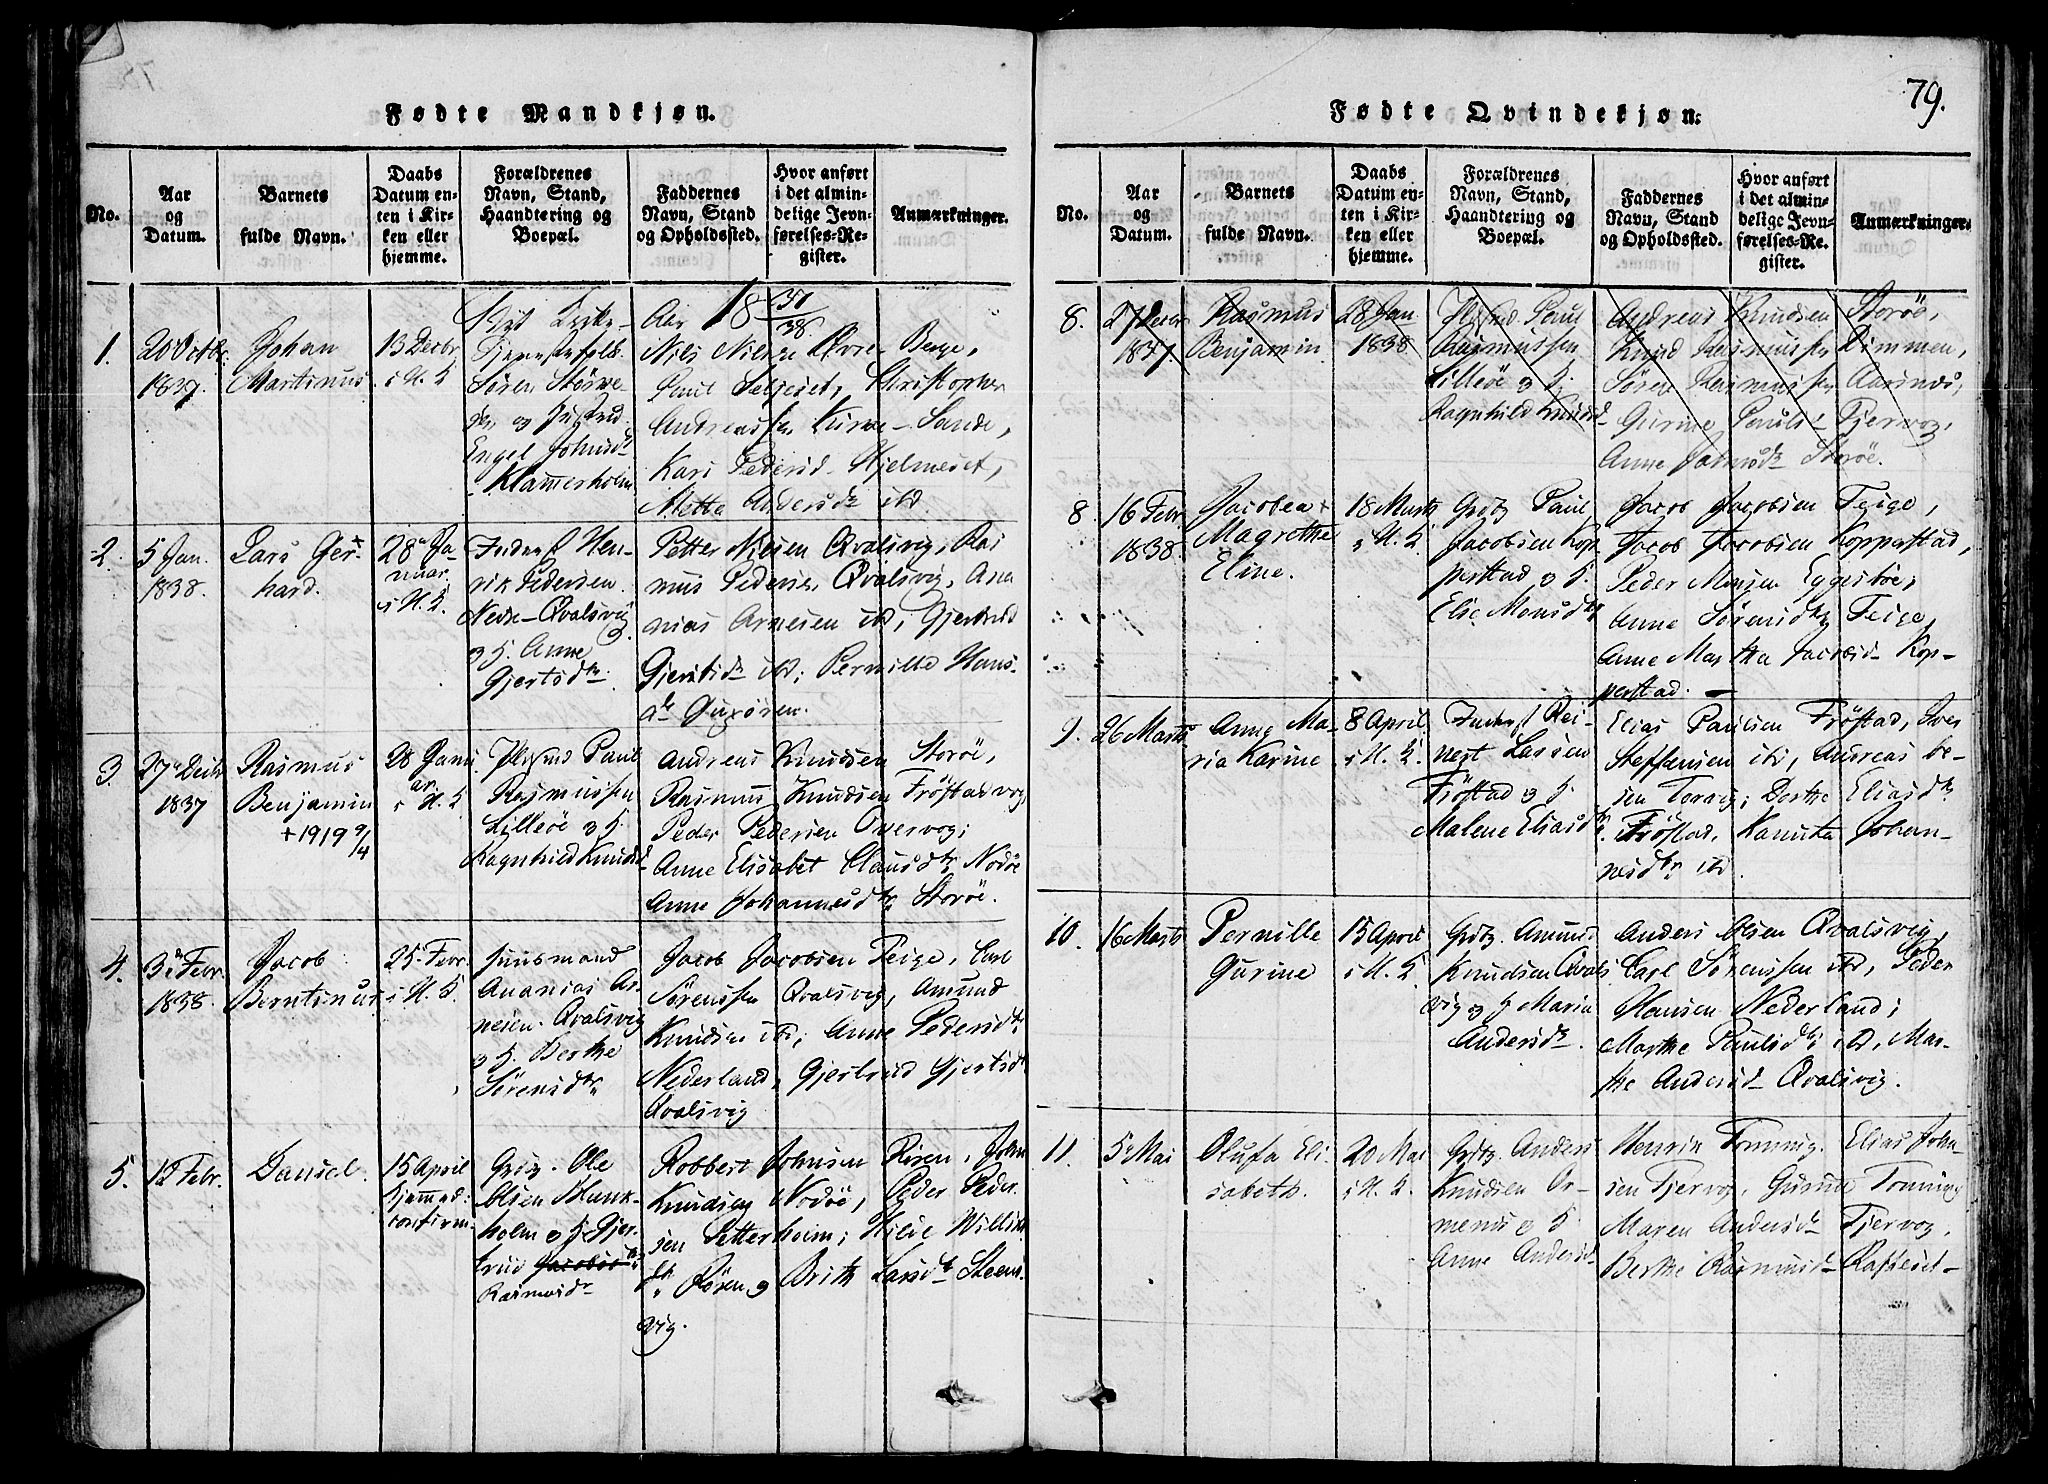 Fødte Mandkjøn.
No.
Aar
og
Datum.
Barnets
fulde Navn.
Daabs
Datum en-
ten i Kir-
ken eller
hjemme.
Forældrenes
Navn, Stand,
Haandtering og
Boepæl.
Faddernes
Navn, Stand
og Opholdssted.
Hvor anført
i det almin-
delige Jevn-
førelses-Re-
gister.
Anmærkninger.
Aar 18 37/38.
1.
20 Octbr.
1837.
Johan
Martinus
13 Decbr
i H. K.
Tjenestefolk
Søren
og
Engel Johnsdr
Klamerholm
Niels Nilsen Øvre-Berge,
Paul Seljeset, Christopher
Andreassen Kurve-Sande,
Kari Pedersd. Hjelmeset,
Mette Andersdr ibd.
2.
5 Jan.
1838.
Lars Ger-
hard.
28 Ja-
nuar
i H. K.
Inders. Hen-
rik Pedersen
Nedre-Qvalsvig
og H. Anne
Gjertsdr
Petter Nilsen Qvalsvig, Ras
mus Pedersen Qvalsvig, Ana
nias Arnesen ibd, Gjertrud
Gjertsdr ibd; Pernille Hans-
dr Gurøren.
3.
27 Decbr
1837
Rasmus
Benjamin
+ 1919 9/4
28 Janu
ar.
i H. K.
Paul
Rasmussen
Lilleøe og H.
Ragnhild Knudsd
Andreas Knudsen Storøe,
Rasmus Knudsen Frøstadvog,
Peder Pedersen Ossevog;
Anne Elisabet Clausdtr Nodøe
Anne Johannesdtr Storøe.
4.
3 Febr.
1838.
Jacob
Berntinus
25 Febr.
i H. K.
Huusmand
Ananias Ar-
nesen. Qvalsvig
og H. Berthe
Sørensdtr
Jacob Jacobsen Teige, Carl
Sørenssen Qvalsvig, Amund
Knudsen ibd, Anne Pedersdtr
Nederland, Gjertrud Gjertsdtr
Qvalsvig
5.
12 Febr.
Daniel.
15 April
hjemmed:
confirm
Grdbr. Ole
Olsen Munk-
holm og H. Gjer-
trud Jacobsdtr
Rasmusdr
Robbert Johnsen Røren, John
Knudsen Nodøe, Peder Peder-
sen Petterholm; Hilde Willum
dtr Røren og Brith Larsdtr Steens-
vig.
79.
Fødte Qvindekjøn.
No.
Aar
og
Datum.
Barnets
fulde Navn.
Daabs
Datum en-
ten i Kir-
ken eller
hjemme.
Forældrenes
Navn, Stand,
Haandtering og
Boepæl.
Faddernes
Navn, Stand
og Opholdssted.
Hvor anført
i det almin-
delige Jevn-
førelses-Re-
gister.
Anmærkninger.
8.
27 Decbr
1837
Rasmus
Benjamin
28 Jan
1838
Paul
Rasmussen
Lilleøe og H.
Ragnhild Knudsd
Andreas Knudsen Storøe,
Knud Rasmussen Dimmen,
Søren Rasmussen Aarsnæs,
Gurine Paulsd Tjervog,
Anne Johnsdr Storøe.
8
16 Febr.
1838.
Jacobea
Magrethe
Eline.
18 Marts
i H. K.
Grdbr Paul
Jacobsen Kop-
perstad og H.
Elie Monsdtr
Jacob Jacobsen Teige,
Jacob Jacobsen Kopperstad,
Peder Monsen Eggesbøe,
Anne Sørensdtr Teige,
Anne Martha Jacobsd Kop-
perstad.
9.
26 Marts
Anne Ma-
ria Karine
8 April
i H. K.
Inders. Rei-
nert Lassen
Frøstad og H.
Malene Eliasdtr
Elias Paulsen Frøstad, Iver
Steffensen ibd, Andreas Le-
sen Torvig; Dorthe Eliasdtr
Frøstad, Kanuta Johan-
nesdtr ibd.
10.
16 Marts
Pernille
Gurine
15 April
i H. K.
Grdbr. Amund
Knudsen Qvals-
vig og H Maria
Andersdr.
Anders Olsen Qvalsvig,
Carl Sørenssen ibd, Peder
Hansen Nederland;
Marthe Paulsdtr ibd, Mar-
the Andersd Qvalsvig.
11.
5 Mai
Olufa Eli-
sabeth.
20 Mai
i H. K.
Grdbr. Anders
Knudsen Or-
menis og H.
Anne Andersd
Henrik Tonning. Elias John-
sen Tjervog, Gurine Tonning
Maren Andersdr Tjervog,
Berthe Rasmusd Rafteset-